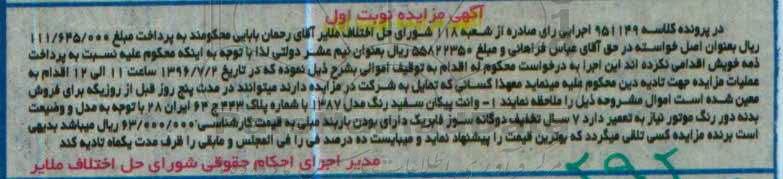 آگهی مزایده نوبت اول
در پرونده کلاسه 951149 اجرایی رای صادره از شعبه 118 شورای حل اختلاف ملایر آقای رحمان بابایی محکومند به پرداخت مبلغ 111/645/000
ریال بعنوان اصل خواسته در حق آقای عباس فراهانی و مبلغ 55822350 ریال بعنوان نیم عشر دولتی لذا با توجه به اینکه محکوم علیه نسبت به پرداخت
ذمه خویش اقدامی نکرده اند این اجرا به درخواست محکوم له اقدام به توقیف اموالی بشرح ذیل نموده که در تاریخ 1396/7/2 ساعت 11 الی 12 اقدام به
عملیات مزایده جهت تادیه دین محکوم علیه مینماید معهذا کسانی که تمایل به شرکت در مزایده دارند میتوانند در مدت پنج روز قبل از روزیکه برای فروش
معین شده است اموال مشروحه ذیل را ملاحظه نمایند 1- وانت پیکان سفید رنگ مدل 1387 با شماره پلاک 443ج64 ایران 28 با توجه به مدل و وضیعت
بدنه دور رنگ موتور نیاز به تعمیر دارد 7 سال تخفیف دوگانه سوز فابریک دارای بودن باربند مبلی به قیمت کارشناسی 63/000/000 ریال میباشد بدیهی
است برنده مزایده کسی تلقی میگردد که بهترین قیمت را پیشنهاد نماید و میبایست ده درصد فی را فی المجلس و مابقی را ظرف مدت یکماه تادیه کند
مدیر اجرای احکام حقوقی شورای حل اختلاف ملایر